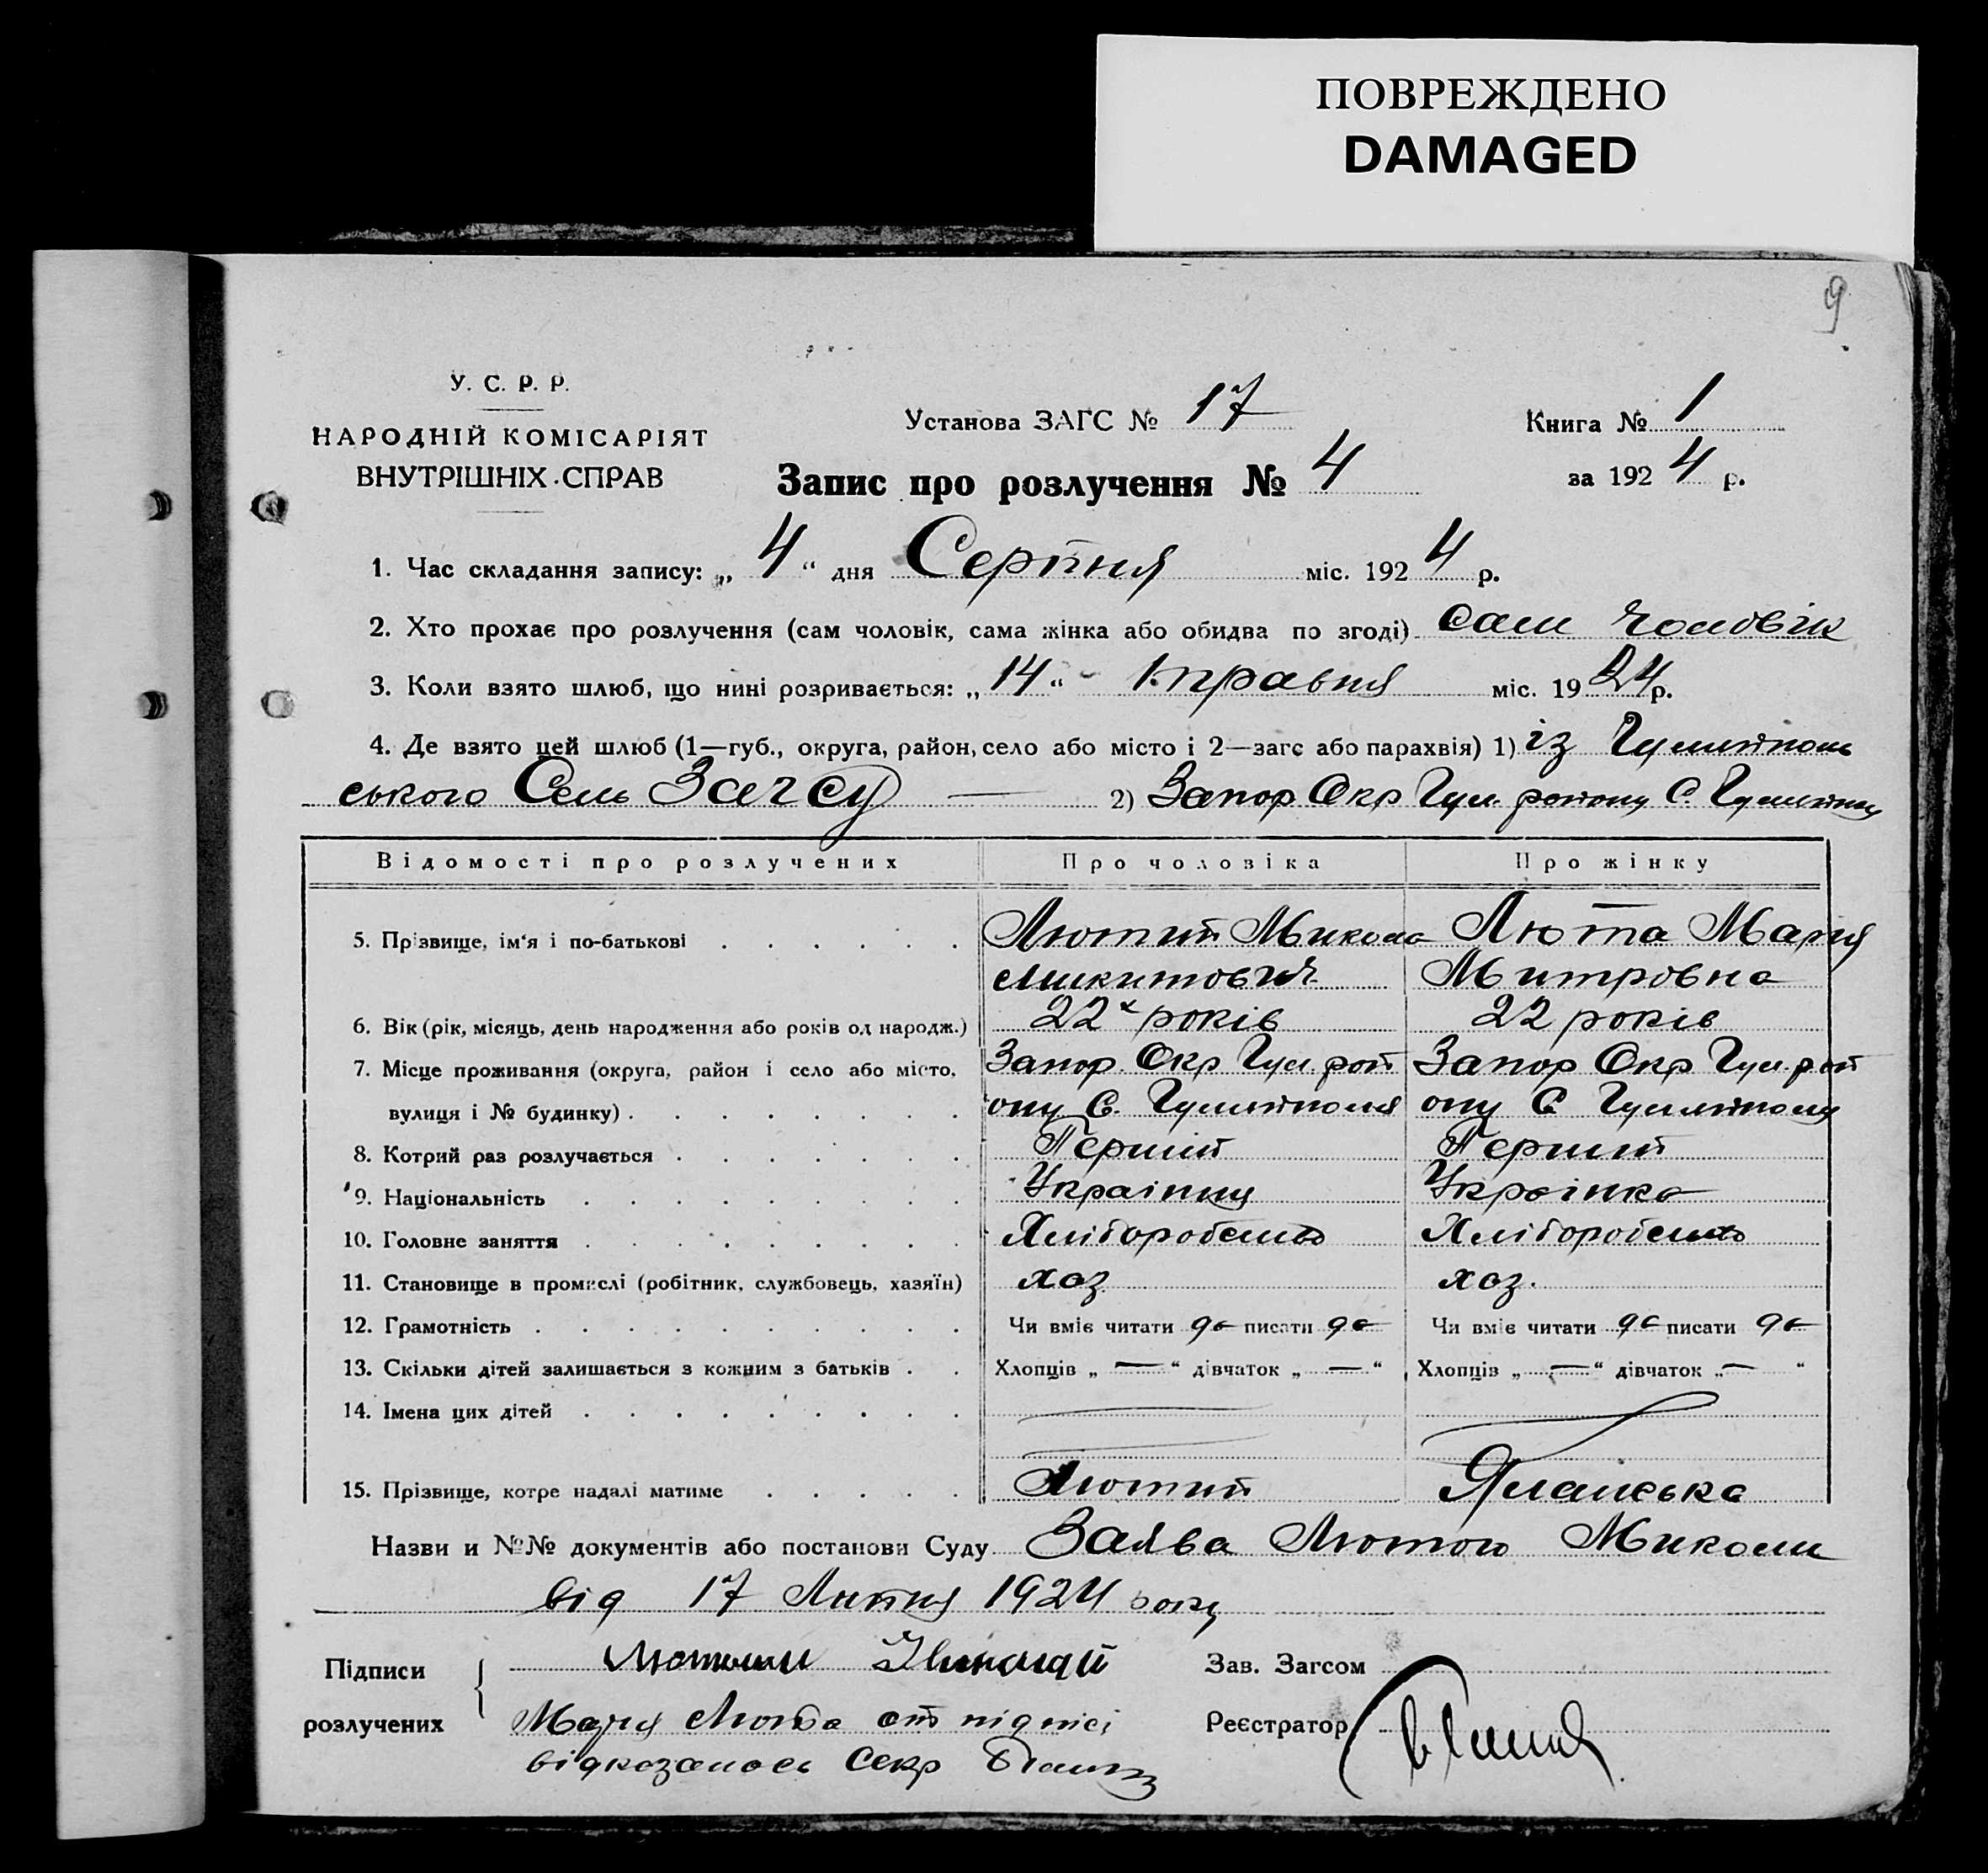 ПОВРЕЖДЕНО
DAMAGED
9
У. С. Р. Р.
НАРОДНІЙ КОМІСАРІЯТ
ВНУТРІШНІХ СПРАВ
Установа ЗАГС № 17
Книга № 1
за 1924 р.
Запис про розлучення № 4
1. Час складання запису: „ 4 “ дня Серпня міс. 1924 р.
2. Хто прохає про розлучення (сам чоловік, сама жінка або обидва по згоді) сам чоловік
3. Коли взято шлюб, що нині розривається: „ 14 “ травня міс. 1924 р.
4. Де взято цей шлюб (1—губ., округа, район, село або місто і 2—загс або парахвія) 1) із Гуляйполь
ського Сель Загсу — 2) Запор Окр Гул. району С. Гуляйполя
Відомості про розлучених Про чоловіка Про жінку
5. Прізвище, ім‘я і по-батькові Лютий Микола Люта Мария
Микитович Митровна
6. Вік (рік, місяць, день народження або років од народж.) 22х років 22 років
7. Місце проживання (округа, район і село або місто, Запор. Окр Гул. рай Запор Окр Гул. рай
вулиця і № будинку) ону С. Гуляйполя ону С Гуляйполя
8. Котрий раз розлучається Перший Перший
9. Національність Українец Українка
10. Головне заняття Хліборобство Хліборобство
11. Становище в промислі (робітник, службовець, хазяїн) хаз хаз.
12. Грамотність Чи вміє читати да писати да Чи вміє читати да писати да
13. Скільки дітей залишається з кожним з батьків Хлопців „ — “ дівчаток „ — “ Хлопців „ — “ дівчаток „ — “
14. Імена цих дітей
15. Прізвище, котре надалі матиме Лютий Яланська
Назви и №№ документів або постанови Суду Заява Лютого Миколи
від 17 Липня 1924 року
Підписи
розлучених
Мария Люта от підписі
відказалась Секр
Зав. Загсом
Реєстратор